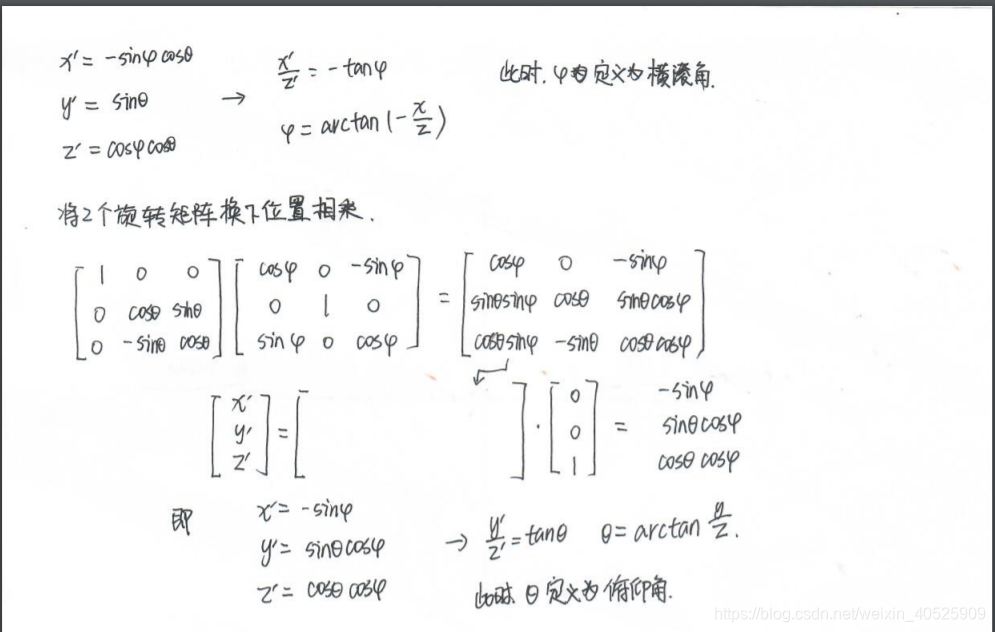 x' = -sinφcosθ
y' = sinθ
z' = cosφcosθ
→
x'/z' = -tanφ
φ = arctan(-x/z)
此时. φ为定义为横滚角.
将2个旋转矩阵换下位置相乘.
[1 0 0
0 cosθ sinθ
0 -sinθ cosθ]
[cosφ 0 -sinφ
0 1 0
sinφ 0 cosφ]
=
[cosφ 0 -sinφ
sinθsinφ cosθ sinθcosφ
cosθsinφ -sinθ cosθcosφ]
[x'
y'
z']
= [ ] · [0
0
1]
=
-sinφ
sinθcosφ
cosθcosφ
即
x' = -sinφ
y' = sinθcosφ
z' = cosθcosφ
→ y'/z' = tanθ θ = arctan y/z.
此时 θ定义为俯仰角.
https://blog.csdn.net/weixin_40525909